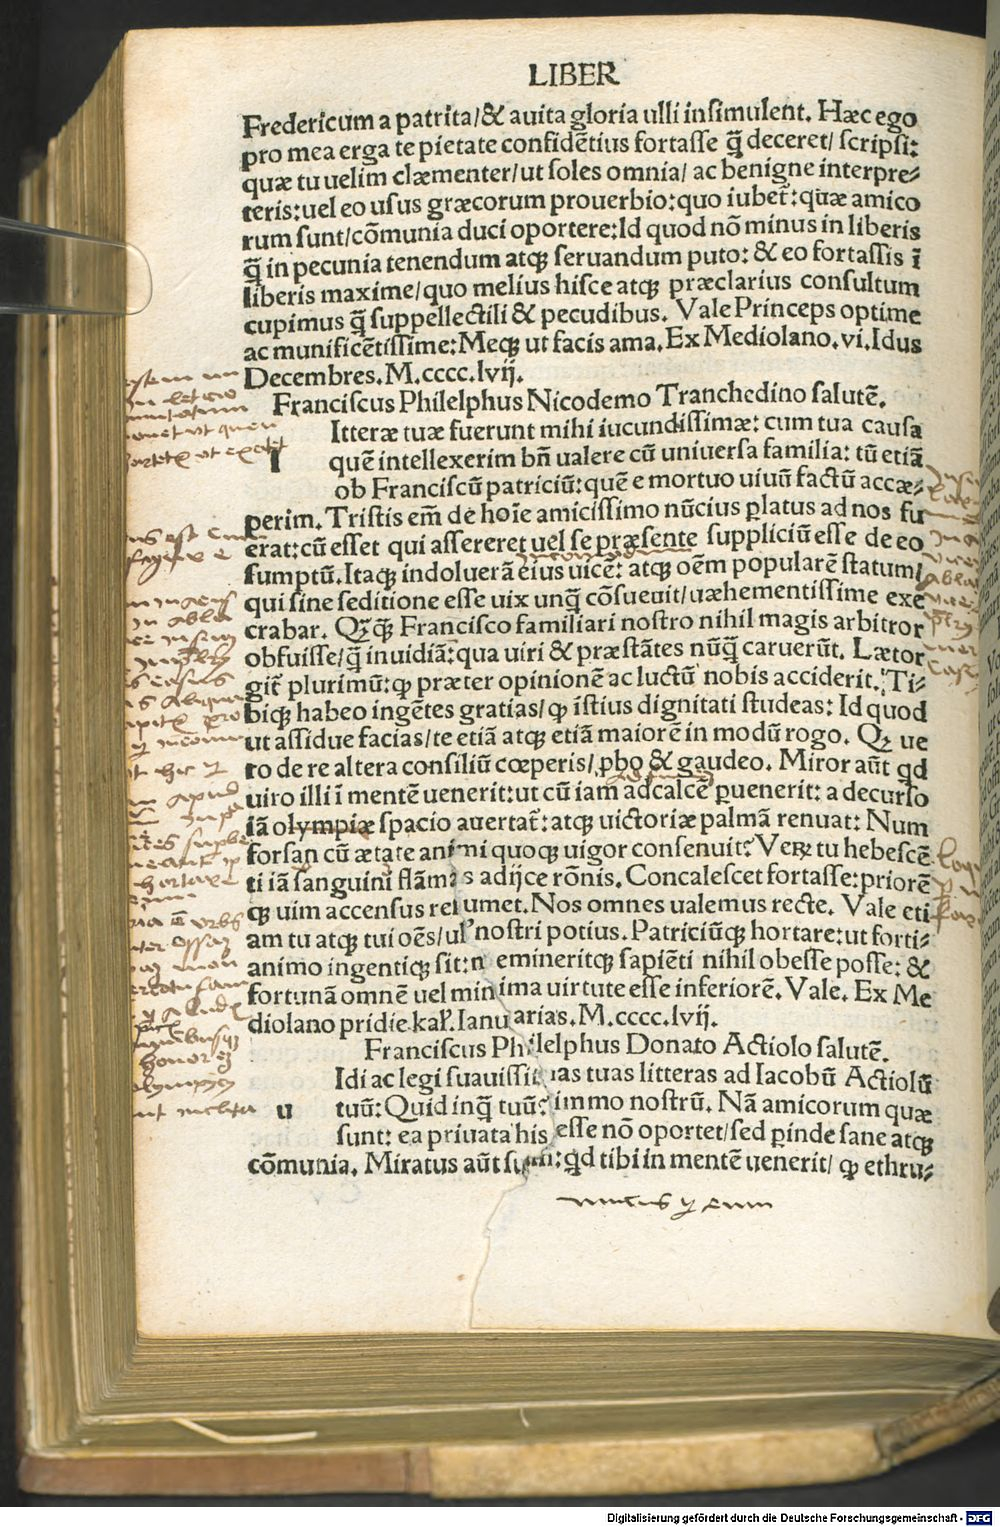 LIBER
Fredericum a patrita/& auita gloria ulli insimulent. Hæc ego
pro mea erga te pietate confidẽtius fortasse q̃ deceret/ scripsi:
quæ tu uelim clæmenter/ut soles omnia/ ac benigne interpre⸗
teris:uel eo usus græcorum prouerbio:quo iubet᷑:quæ amico
rum sunt/cõmunia duci oportere:Id quod nõ minus in liberis
q̃ in pecunia tenendum atqꝫ seruandum puto: & eo fortassis ĩ
liberis maxime/quo melius hisce atqꝫ præclarius consultum
cupimus q̃ suppellectili & pecudibus. Vale Princeps optime
ac munificẽtissime:Meqꝫ ut facis ama. Ex Mediolano.vi.Idus
Decembres.M.cccc.lvij.
Franciscus Philelphus Nicodemo Tranchedino salutẽ.
l Itteræ tuæ fuerunt mihi iucundissimæ: cum tua causa
quẽ intellexerim bñ ualere cũ uniuersa familia: tũ etiã
ob Franciscũ patriciũ:quẽ e mortuo uiuũ factũ accæ⸗
perim. Tristis em̃ de hoĩe amicissimo nũcius ꝑlatus ad nos fu
erat:cũ esset qui assereret uel se præsente suppliciũ esse de eo
sumptũ.Itaqꝫ indoluerã eius uicẽ: atqꝫ oẽm popularẽ statum/
qui sine seditione esse uix unq̃ cõsueuit/uæhementissime exe
crabar. Qꝫq̃ Francisco familiari nostro nihil magis arbitror
obfuisse/q̃ inuidiã:qua uiri & præstãtes nũq̃ caruerũt. Lætor
git᷑ plurimũ:ꝙ præter opinionẽ ac luctũ nobis acciderit. Ti⸗
biqꝫ habeo ingẽtes gratias/ꝙ istius dignitati studeas: Id quod
ut assidue facias/te etiã atqꝫ etiã maiorẽ in modũ rogo. Qꝫ ue
ro de re altera consiliũ cœperis/ ꝓbo & gaudeo. Miror aũt qd
uiro illi ĩ mentẽ uenerit:ut cũ iam ad calcẽ ꝑuenerit: a decurso
iã olympiæ spacio auertat᷑: atqꝫ uictoriæ palmã renuat: Num
forsan cũ ætate animi quoqꝫ uigor consenuit? Veꝝ tu hebescẽ
ti iã sanguini flãmas adijce rõnis. Concalescet fortasse:priorẽ
qꝫ uim accensus resumet. Nos omnes ualemus recte. Vale eti
am tu atqꝫ tui oẽs/ul' nostri potius. Patriciũqꝫ hortare:ut forti⸗
animo ingentiqꝫ sit:memineritqꝫ sapiẽti nihil obesse posse: &
fortunã omnẽ uel minima uirtute esse inferiorẽ. Vale. Ex Me
diolano pridie kal'. Ianuarias.M.cccc.lvij.
Franciscus Philelphus Donato Actiolo salutẽ.
u Idi ac legi suauissimas tuas litteras ad Iacobũ Actiolũ
tuũ:Quid inq̃ tuũ? immo nostrũ. Nã amicorum quæ
sunt: ea priuata his esse nõ oportet/sed ꝑinde sane atqꝫ
cõmunia. Miratus aũt sum:qd tibi in mentẽ uenerit/ ꝙ ethru⸗
Digitalisierung gefördert durch die Deutsche Forschungsgemeinschaft - DFG